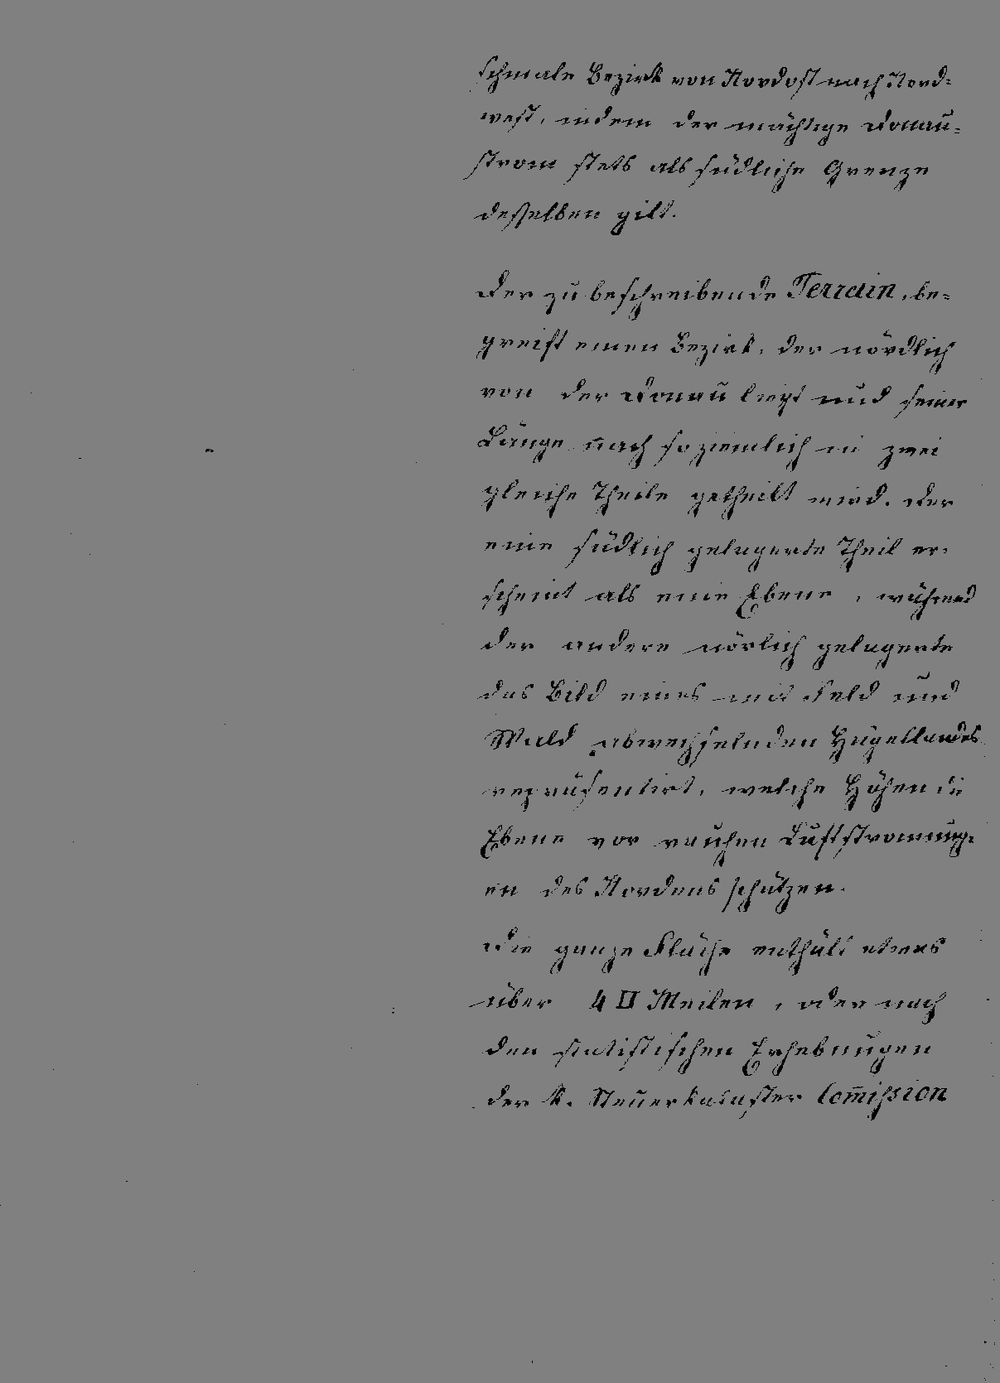 schmale Bezirk von Nordost nach Nord-
west, indem der mächtige Donau-
strom stets als südliche Grenze
desselben gilt.
Der zu beschreibende Terrain, be-
greift einen Bezirk, der nördlich
von der Donau liegt und seiner
Länge nach so ziemlich in zwei
gleiche Theile getheilt wird. Der
eine südlich gelagerte Theil er-
scheint als eine Ebene, während
der andere nörlich gelagerte
das Bild eines mit Feld und
Wald abwechselnden Hügellandes
repräsentirt, welche Höhen die
Ebene vor rauhen Luftströmung-
en des Nordens schützen.
Die ganze Fläche enthält etwas
über 4 □ Meilen, oder nach
den statistischen Erhebungen
der k. Steuerkataster Com̅ission